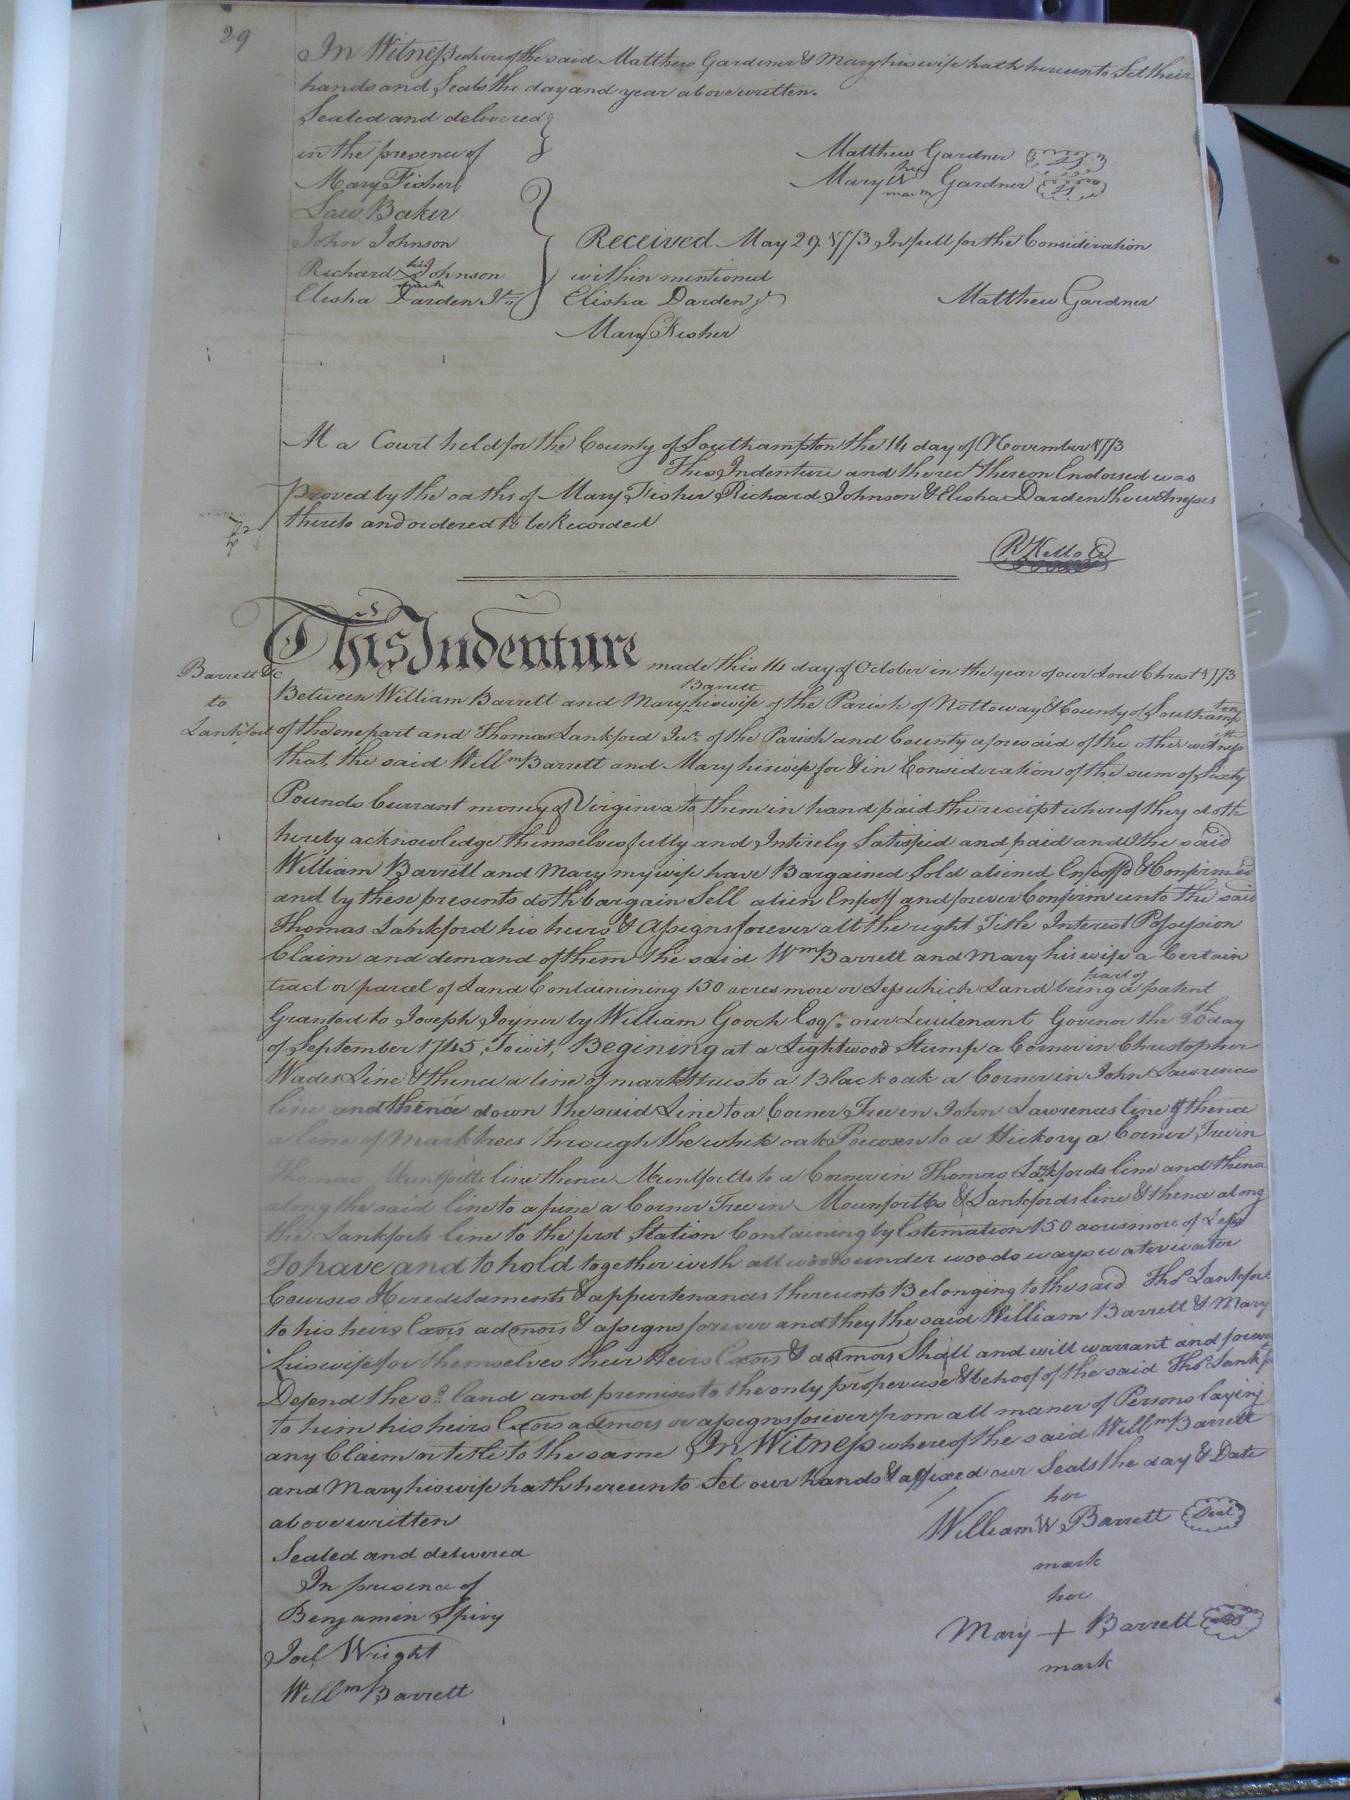 29
In Witness whereof the said Matthew Gardner & Mary his wife hath hereunto Set their
hands and Seals the day and year above written.
Sealed and delivered
in the presence of
Matthew Gardner
Mary Fisher
Mary her mark Gardner
Law Baker
John Johnson
Received May 29. 1773 In full for the Consideration
Richard his mark Johnson
within mentioned
Elisha Darden Jr
Elisha Darden Jr
Matthew Gardner
Mary Fisher
At a Court held for the County of Southampton the 14 day of November 1773
This Indenture and the rect thereon Endorsed was
proved by the oaths of Mary Fisher Richard Johnson & Elisha Darden the witnesses
thereto and ordered to be Recorded
R Kello
This Indenture made this 14 day of October in the year of our Lord Christ 1773
Barrett &c
to
Lankford
Between William Barrett and Mary Barrett his wife of the Parish of Nottoway & County of Southampton
of the one part and Thomas Lankford Junr. of the Parish and County aforesaid of the other witness
that, the said Willm Barrett and Mary his wife for & in Consideration of the sum of Sixty
Pounds Currant money of Virginia to them in hand paid the reciept whereof they doth
hereby acknowledge themselves fully and Intirely Satisfied and paid and the said
William Barrett and Mary my wife have Bargained Sold aliened Enfeoff'd & Confirmed
and by these presents doth bargain Sell alien Enfeoff and forever Confirm unto the said
Thomas Lankford his heirs & Assigns forever all the right Title Interest Possession
Claim and demand of them the said Wm Barrett and Mary his wife a Certain
tract or parcel of Land Containining 150 acres more or Less which Land being part of a patent
Granted to Joseph Joyner by William Gooch Esqr. our Lieutenant Govenor the 20th day
of September 1745, To wit, Begining at a Lightwood Stump a Corner in Christopher
Wades Line & thence a line of markt trees to a Black oak a Corner in John Lawrences
line and thence down the said Line to a Corner Tree in John Lawrences line & thence
a line of Mark trees through the white oak Pocosen to a Hickory a Corner Tree in
Thomas line thence to a Corner in Thomas Lankfords line and thence
along the said line to a pine a Corner Tree in Mounfortts & Lankfords line & thence along
the Lankfords line to the first Station Containing by Estimation 150 acres more of Less
To have and to hold together with all woods under woods ways water water
Courses Hereditaments & appurtenances thereunto Belonging to the said Thos Lankford
to his heirs Exors admors & assigns forever and they the said William Barrett & Mary
his wife for themselves their Heirs Exors & admors Shall and will warrant and forever
Defend the sd. land and premises to the only proper use & behoof of the said Thos Lankf
to him his heirs Exors admors or assigns forever from all maner of Persons laying
any Claim or title to the same In Witness whereof the said Willm Barrett
and Mary his wife hath hereunto Set our hands & affixed our Seals the day & Date
above written
her
William W Barrett Seal
mark
Sealed and delivered
In presence of
her
Benjamin Spivy
Mary + Barrett
mark
Joel Wright
Willm Barrett